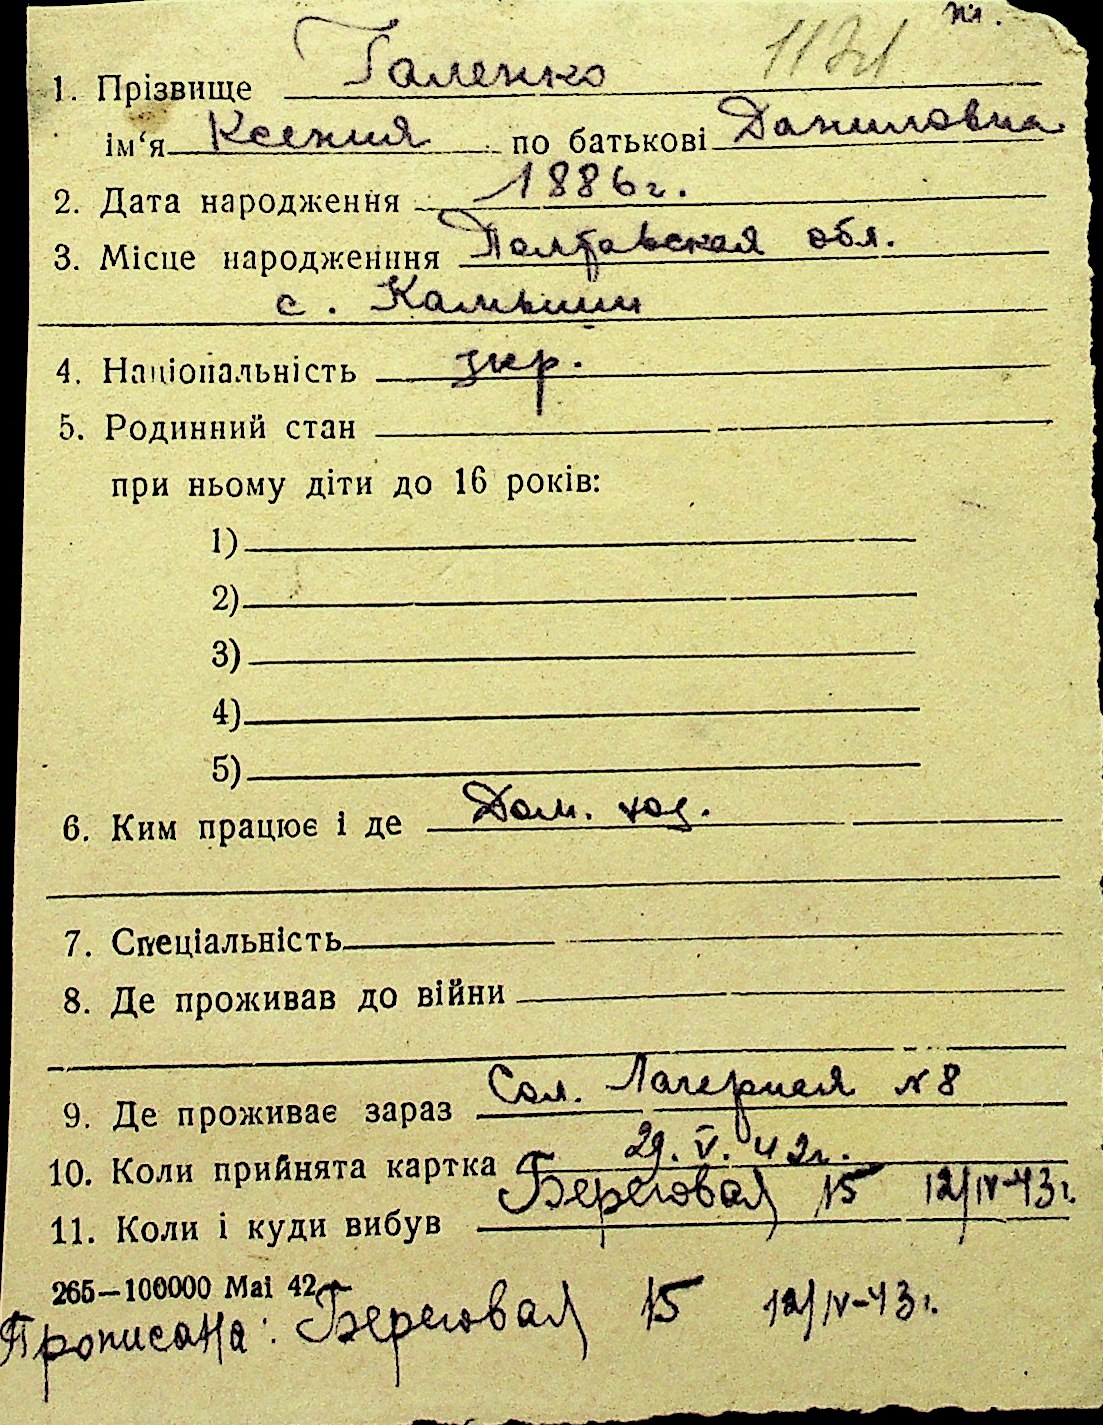 1. Прізвище Галенко 1131
ім‘я Ксения по батькові Даниловна
2. Дата народження 1886 г.
3. Місце народженння Полтавская обл.
с. Камыши
4. Національність укр.
5. Родинний стан
при ньому діти до 16 років:
1)
2)
3)
4)
5)
6. Ким працює і де Дом. хоз.
7. Спеціальність
8. Де проживав до війни
9. Де проживає зараз Сол. Лагерная №8
10. Коли прийнята картка 29.V.42г.
11. Коли і куди вибув Береговая 15 12/IV-43г.
265—100000 Маі 42
Прописана: Береговая 15 12/IV-43г.